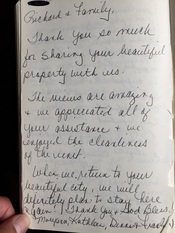 Richard & Family,
Thank you so much
for sharing your beautiful
property with us.
The views are amazing
& we appreciated all of
your assistance & we
enjoyed the cleanliness
of the unit.
When we return to your
beautiful city, we will
definitely plan to stay here
again! Thank you & God Bless
Maureen, Kathleen,